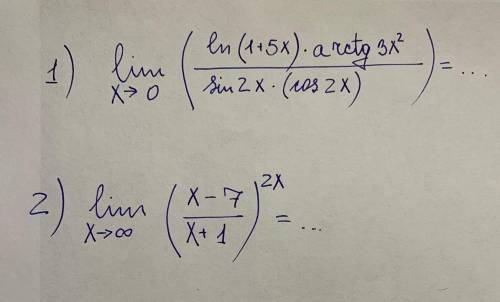 1) lim x→0 ( ln(1+5x)·arctg 3x² / sin2x·(cos2x) ) = ...
2) lim x→∞ ( x-7 / x+1 )^2x = ...